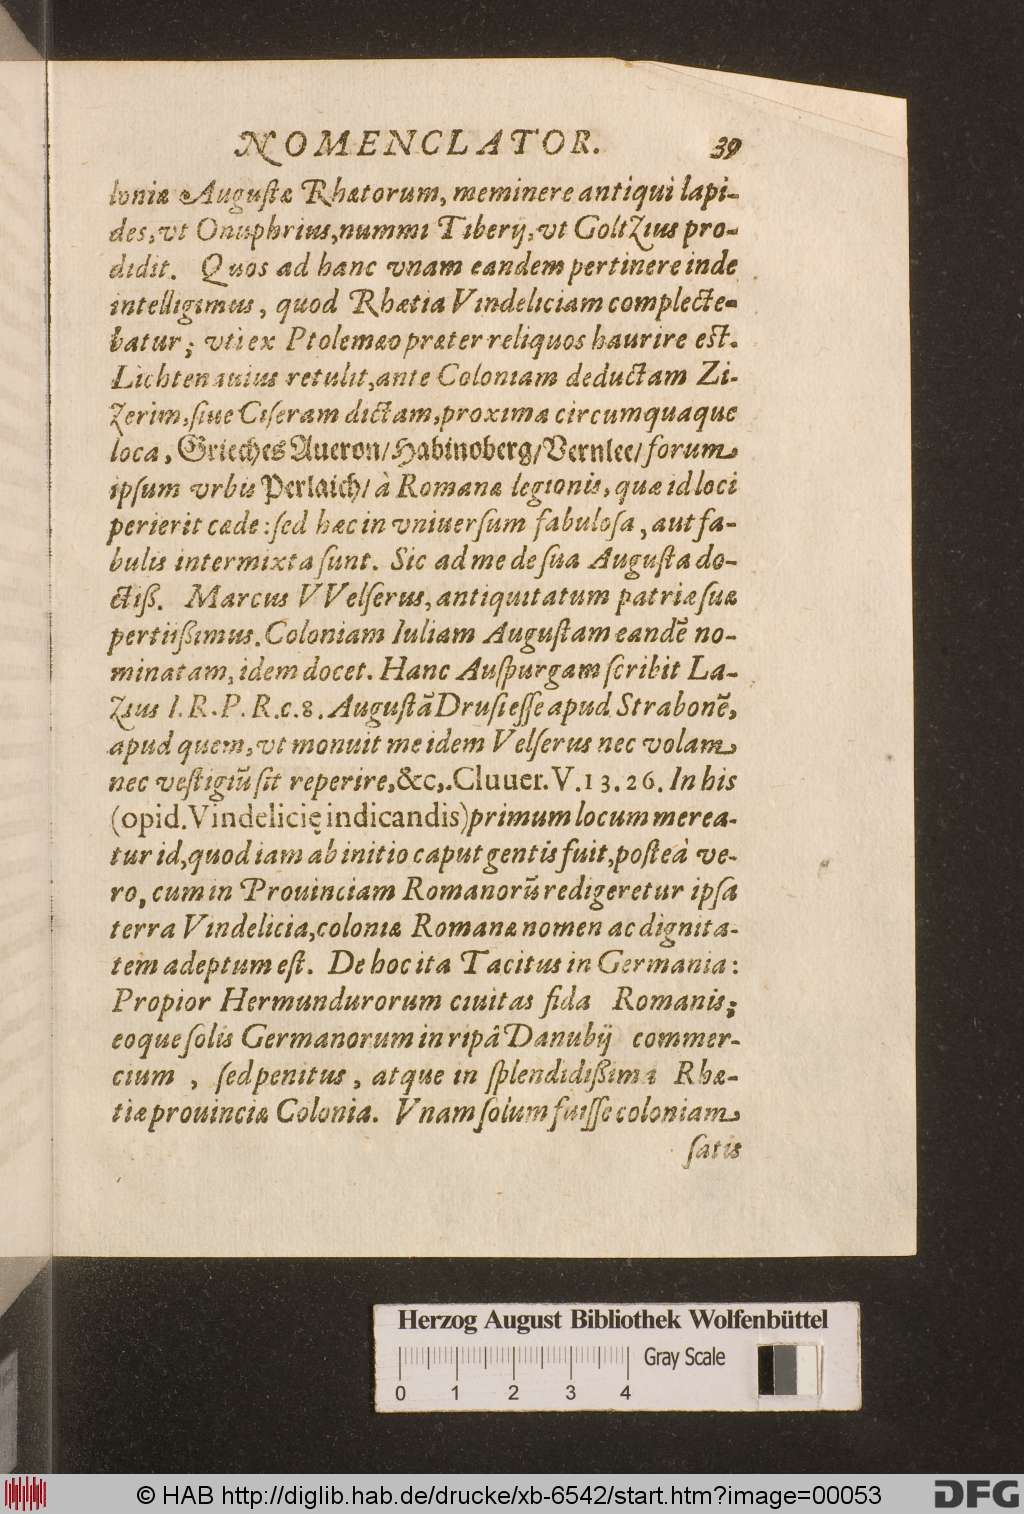 NOMENCLATOR. 39
loniæ Augustæ Rhætorum, meminere antiqui lapi-
des, vt Onuphrius, nummi Tiberij, vt Goltzius pro-
didit. Quos ad hanc vnam eandem pertinere inde
intelligimus, quod Rhætia Vindeliciam complecte-
batur; vti ex Ptolemæo præter reliquos haurire est.
Lichtenauius retulit, ante Coloniam deductam Zi-
zerim, siue Ciseram dictam, proxima circumquaque
loca, Grieches Aueron/Habinoberg/Vernlee/forum
ipsum vrbis Perlaich/ à Romanæ legionis, quæ id loci
perierit cæde: sed hæc in vniuersum fabulosa, aut fa-
bulis intermixta sunt. Sic ad me de sua Augusta do-
ctiß. Marcus VVelserus, antiquitatum patriæ suæ
peritißimus. Coloniam Iuliam Augustam eandẽ no-
minatam, idem docet. Hanc Auspurgam scribit La-
zius l.R.P.R.c.8. Augustã Drusi esse apud Strabonẽ,
apud quem, vt monuit me idem Velserus nec volam
nec vestigiũ sit reperire, &c,. Cluuer. V. 13. 26. In his
(opid. Vindelicię indicandis) primum locum merea-
tur id, quod iam ab initio caput gentis fuit, posteà ve-
ro, cum in Prouinciam Romanorũ redigeretur ipsa
terra Vindelicia, coloniæ Romanæ nomen ac dignita-
tem adeptum est. De hoc ita Tacitus in Germania:
Propior Hermundurorum ciuitas fida Romanis;
eoque solis Germanorum in ripâ Danubij commer-
cium, sed penitus, atque in splendidißima Rhæ-
tiæ prouinciæ Colonia. Vnam solum fuisse coloniam
satis
Herzog August Bibliothek Wolfenbüttel
Gray Scale
0 1 2 3 4
© HAB http://diglib.hab.de/drucke/xb-6542/start.htm?image=00053
DFG